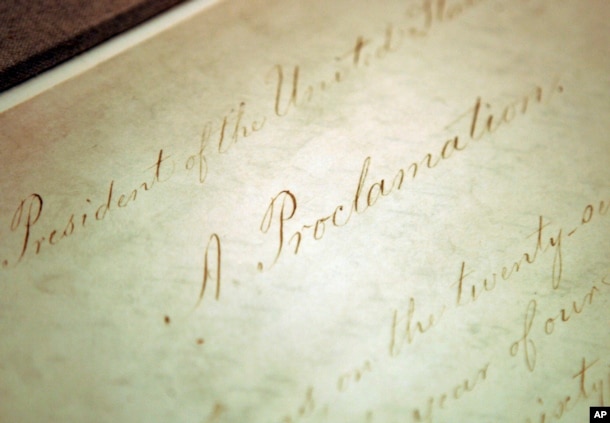 President of the United States
A Proclamation.
on the twenty-se
year of our
sixty
AP